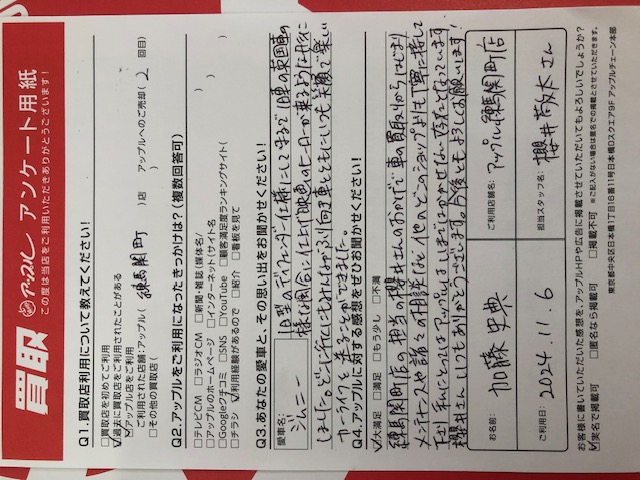 買取 アップル アンケート用紙
この度は当店をご利用いただきありがとうございます!
Q1.買取店利用について教えてください!
□買取店を初めてご利用
☑過去に買取店をご利用されたことがある
☑アップル店をご利用
ご利用された店舗:アップル( 練馬関町 )店 アップルへのご売却( 2 回目)
□その他の買取店( )
Q2.アップルをご利用になったきっかけは?(複数回答可)
□テレビCM □ラジオCM □新聞・雑誌(媒体名/ )
□アップルのホームページ □インターネット(サイト名 )
□Google クチコミ □SNS □YouTube □顧客満足度ランキングサイト( )
□チラシ ☑利用経験があるので □紹介 □看板を見て
Q3.あなたの愛車と、その思い出をお聞かせください!
愛車名: ジムニー
旧型のディフェンダー仕様にしてまるで旧車の英国車の
様な風合に仕上げ映画のヒーローが乗るような
しました。どこに行ってもみんながふり向き車とともにいつも笑顔で楽しい
カーライフを送ることができました。
Q4.アップルに対する感想をぜひお聞かせください!
☑大満足 □満足 □もう少し □不満
練馬関町店の担当の櫻井さんのおかげで車の買取りからはじまり
メンテナンスや諸々の相談など他のどこのショップよりも丁寧に接して
下さり私にとってはアップルはしばらくはかかせない存在となっています
櫻井さんいつもありがとうございます。今後ともよろしくお願いします!
お名前: 加藤 史典
ご利用店舗名: アップル練馬関町店
ご利用日: 2024.11.6
担当スタッフ名: 櫻井 さん
お客様に書いていただいた感想を、アップルHPや広告に掲載させていただいてもよろしいでしょうか?
☑実名で掲載可 □匿名なら掲載可 □掲載不可 ※ご記入がない場合は匿名での掲載とさせていただきます。
東京都中央区日本橋1丁目16番11号日本橋Dスクエア9F アップルチェーン本部